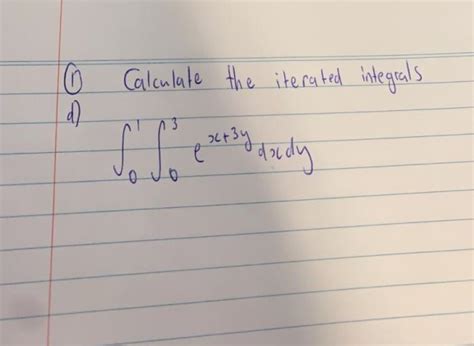 ① Calculate the iterated integrals
d)
∫₀¹ ∫₀³ e^{x+3y} dxdy